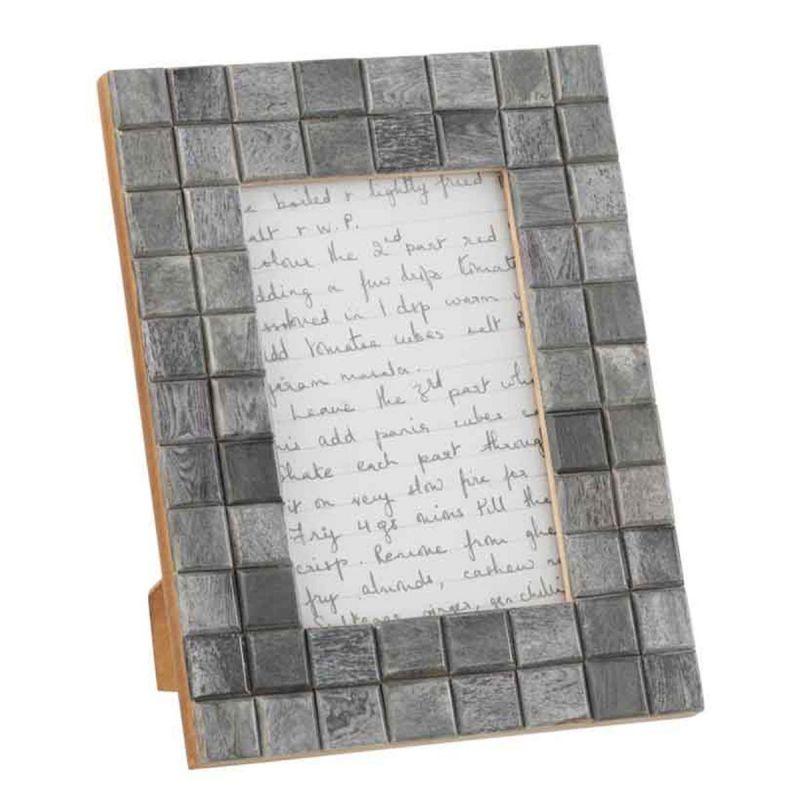 e boiled & lightly fried
alt & W.P.
olour the 2nd part red
dding a few drops tomato
ssolved in 1 dsp warm w
dd tomatoe cubes salt &
garam masala.
Leave the 3rd part whi
his add panir cubes
Shake each part throug
it on very slow fire for
Fry 4 gs onions till the
crisp. Remove from ghe
fry almonds, cashew n
Sultanas, ginger, gen chilli